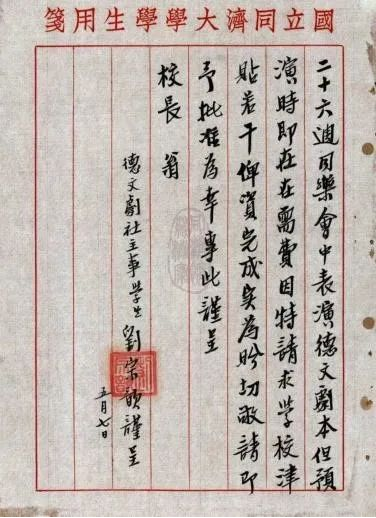 國立同濟大學學生用箋
二十六週同樂會中表演德文劇本但預
演時即在在需費因特請求學校津
貼若干俾資完成实為盼切敬請即
予批准為幸專此謹呈
校長 翁
德文劇社主事學生 劉宗謹呈
五月七日